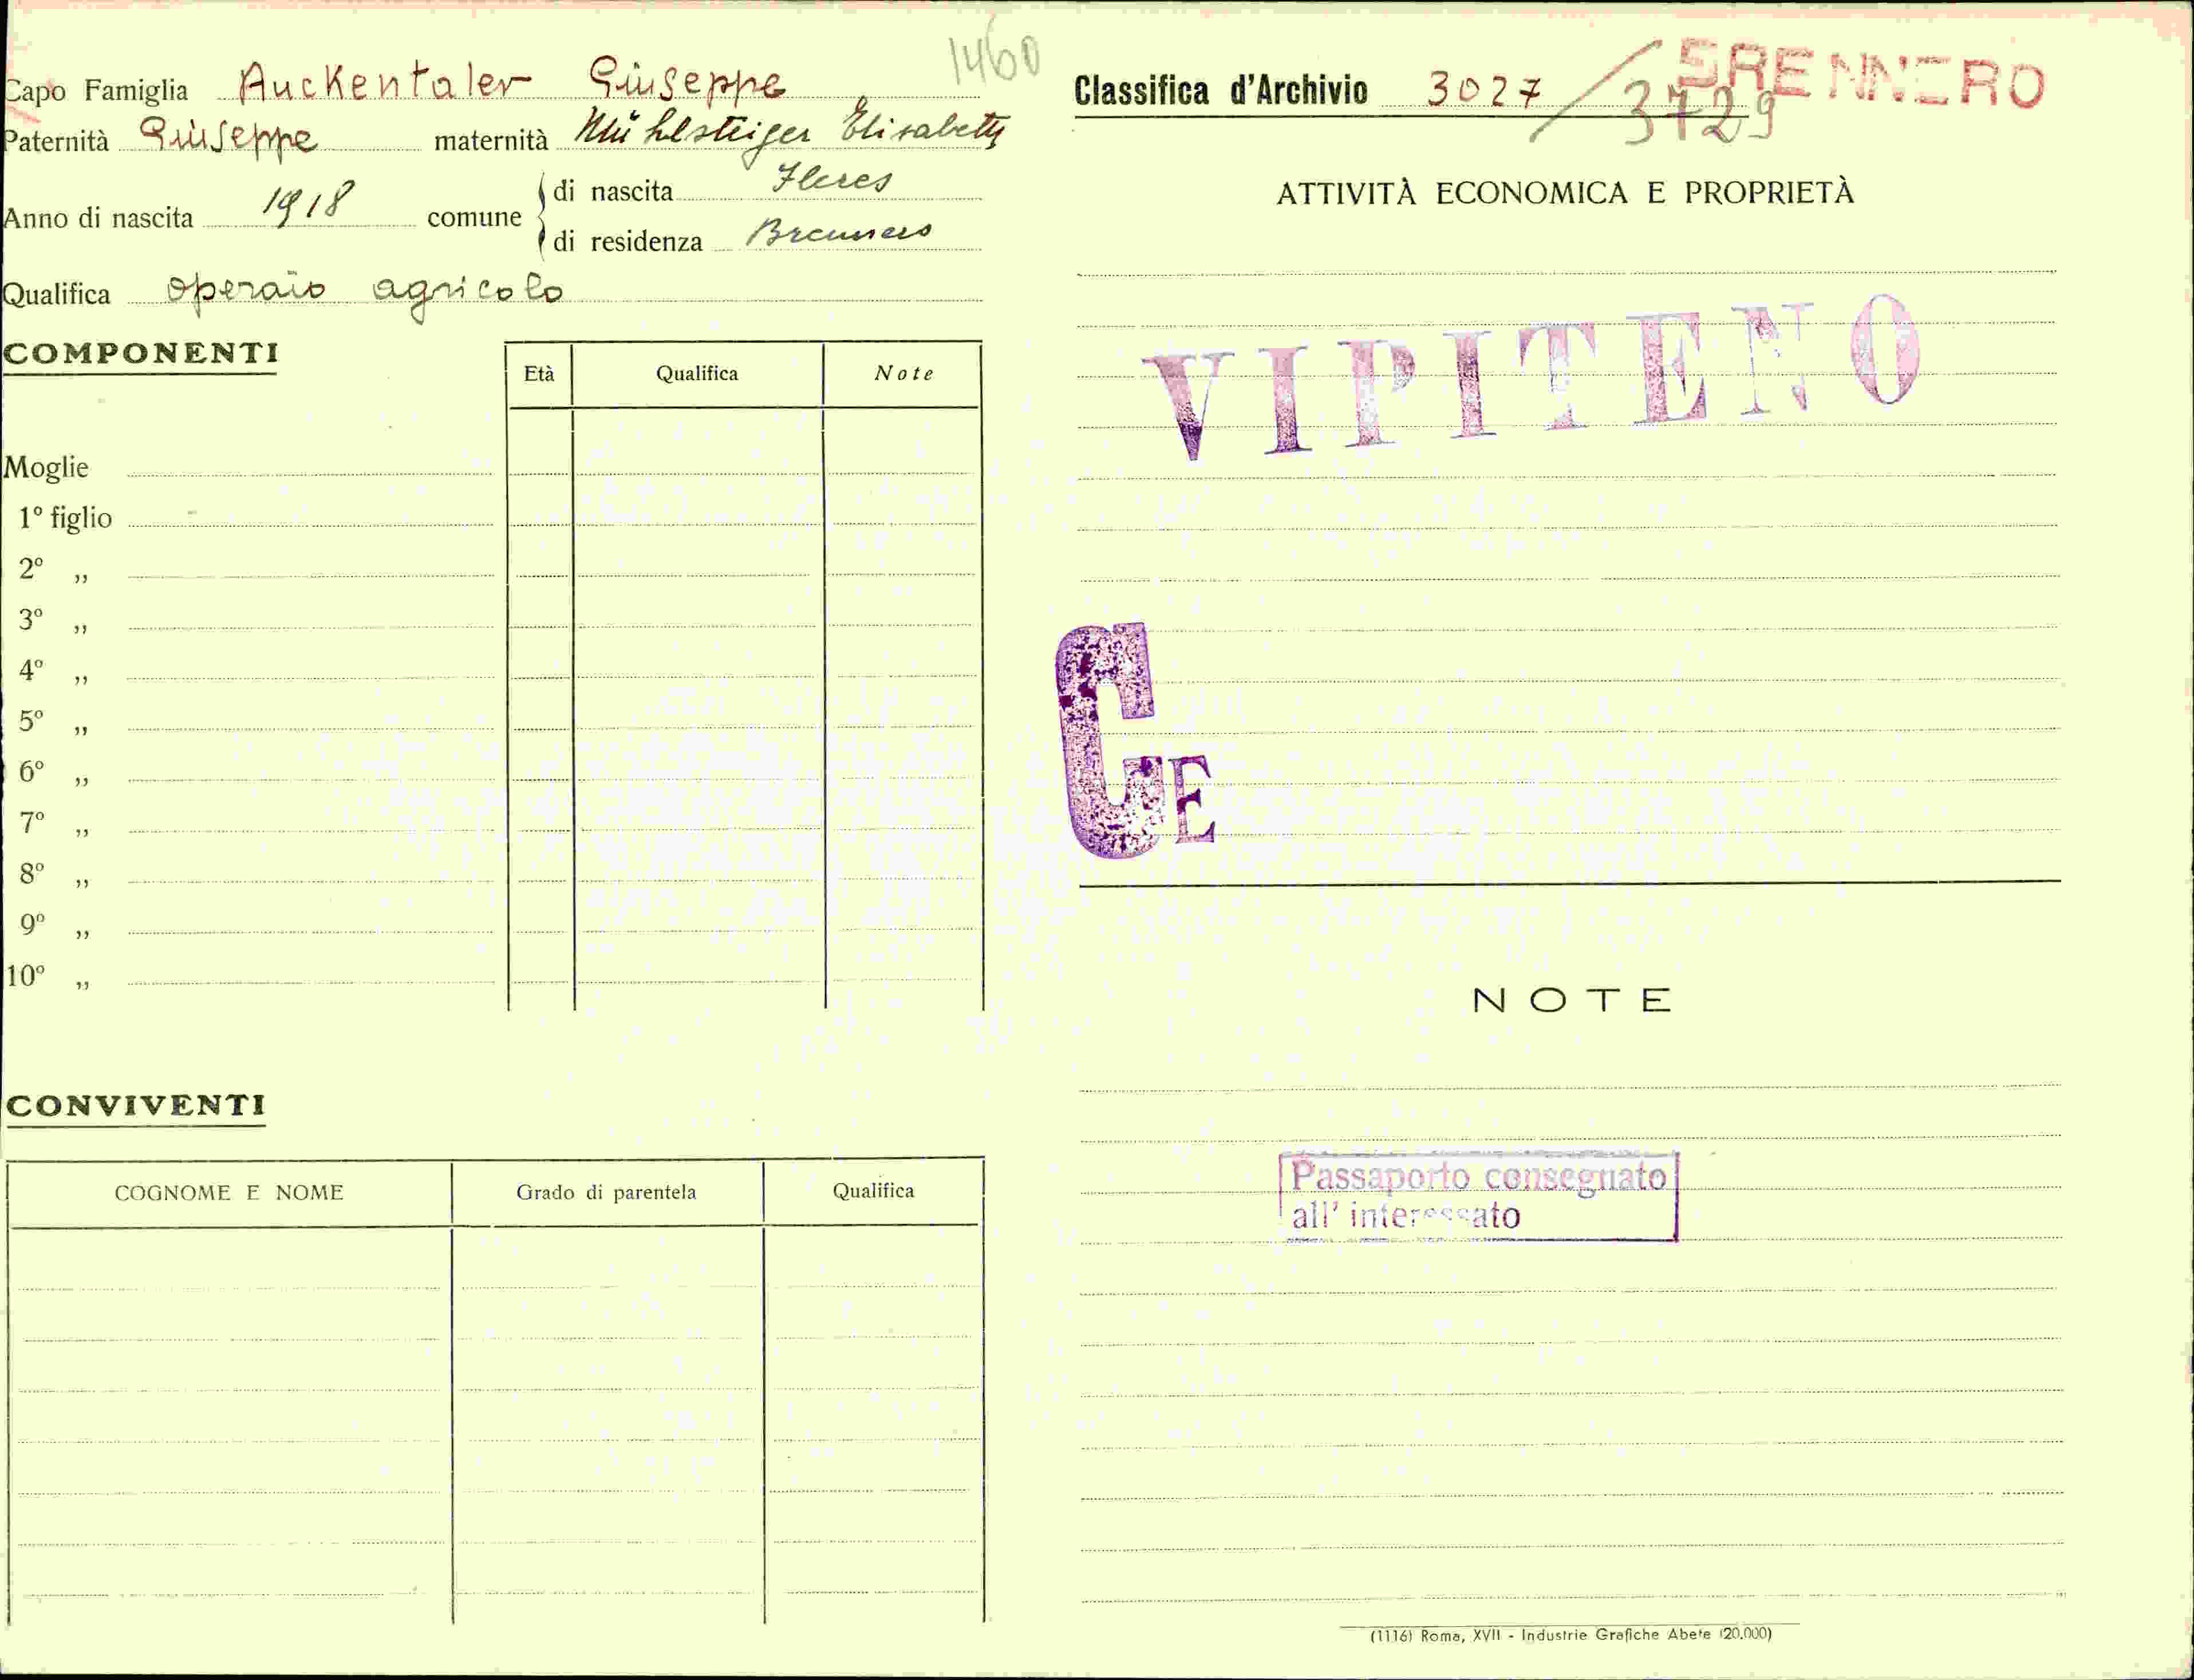 1460
Capo Famiglia Auckentaler Giuseppe
Paternità Giuseppe maternità Mühlsteiger Elisabetta
Anno di nascita 1918 comune di nascita Fleres
di residenza Brennero
Qualifica operaio agricolo
COMPONENTI
Età Qualifica Note
Moglie
1º figlio
2º „
3º „
4º „
5º „
6º „
7º „
8º „
9º „
10º „
CONVIVENTI
COGNOME E NOME Grado di parentela Qualifica
Classifica d'Archivio 3027 / 3729 BRENNERO
ATTIVITÀ ECONOMICA E PROPRIETÀ
VIPITENO
CE
NOTE
Passaporto consegnato
all' interessato
(1116) Roma, XVII - Industrie Grafiche Abete (20.000)